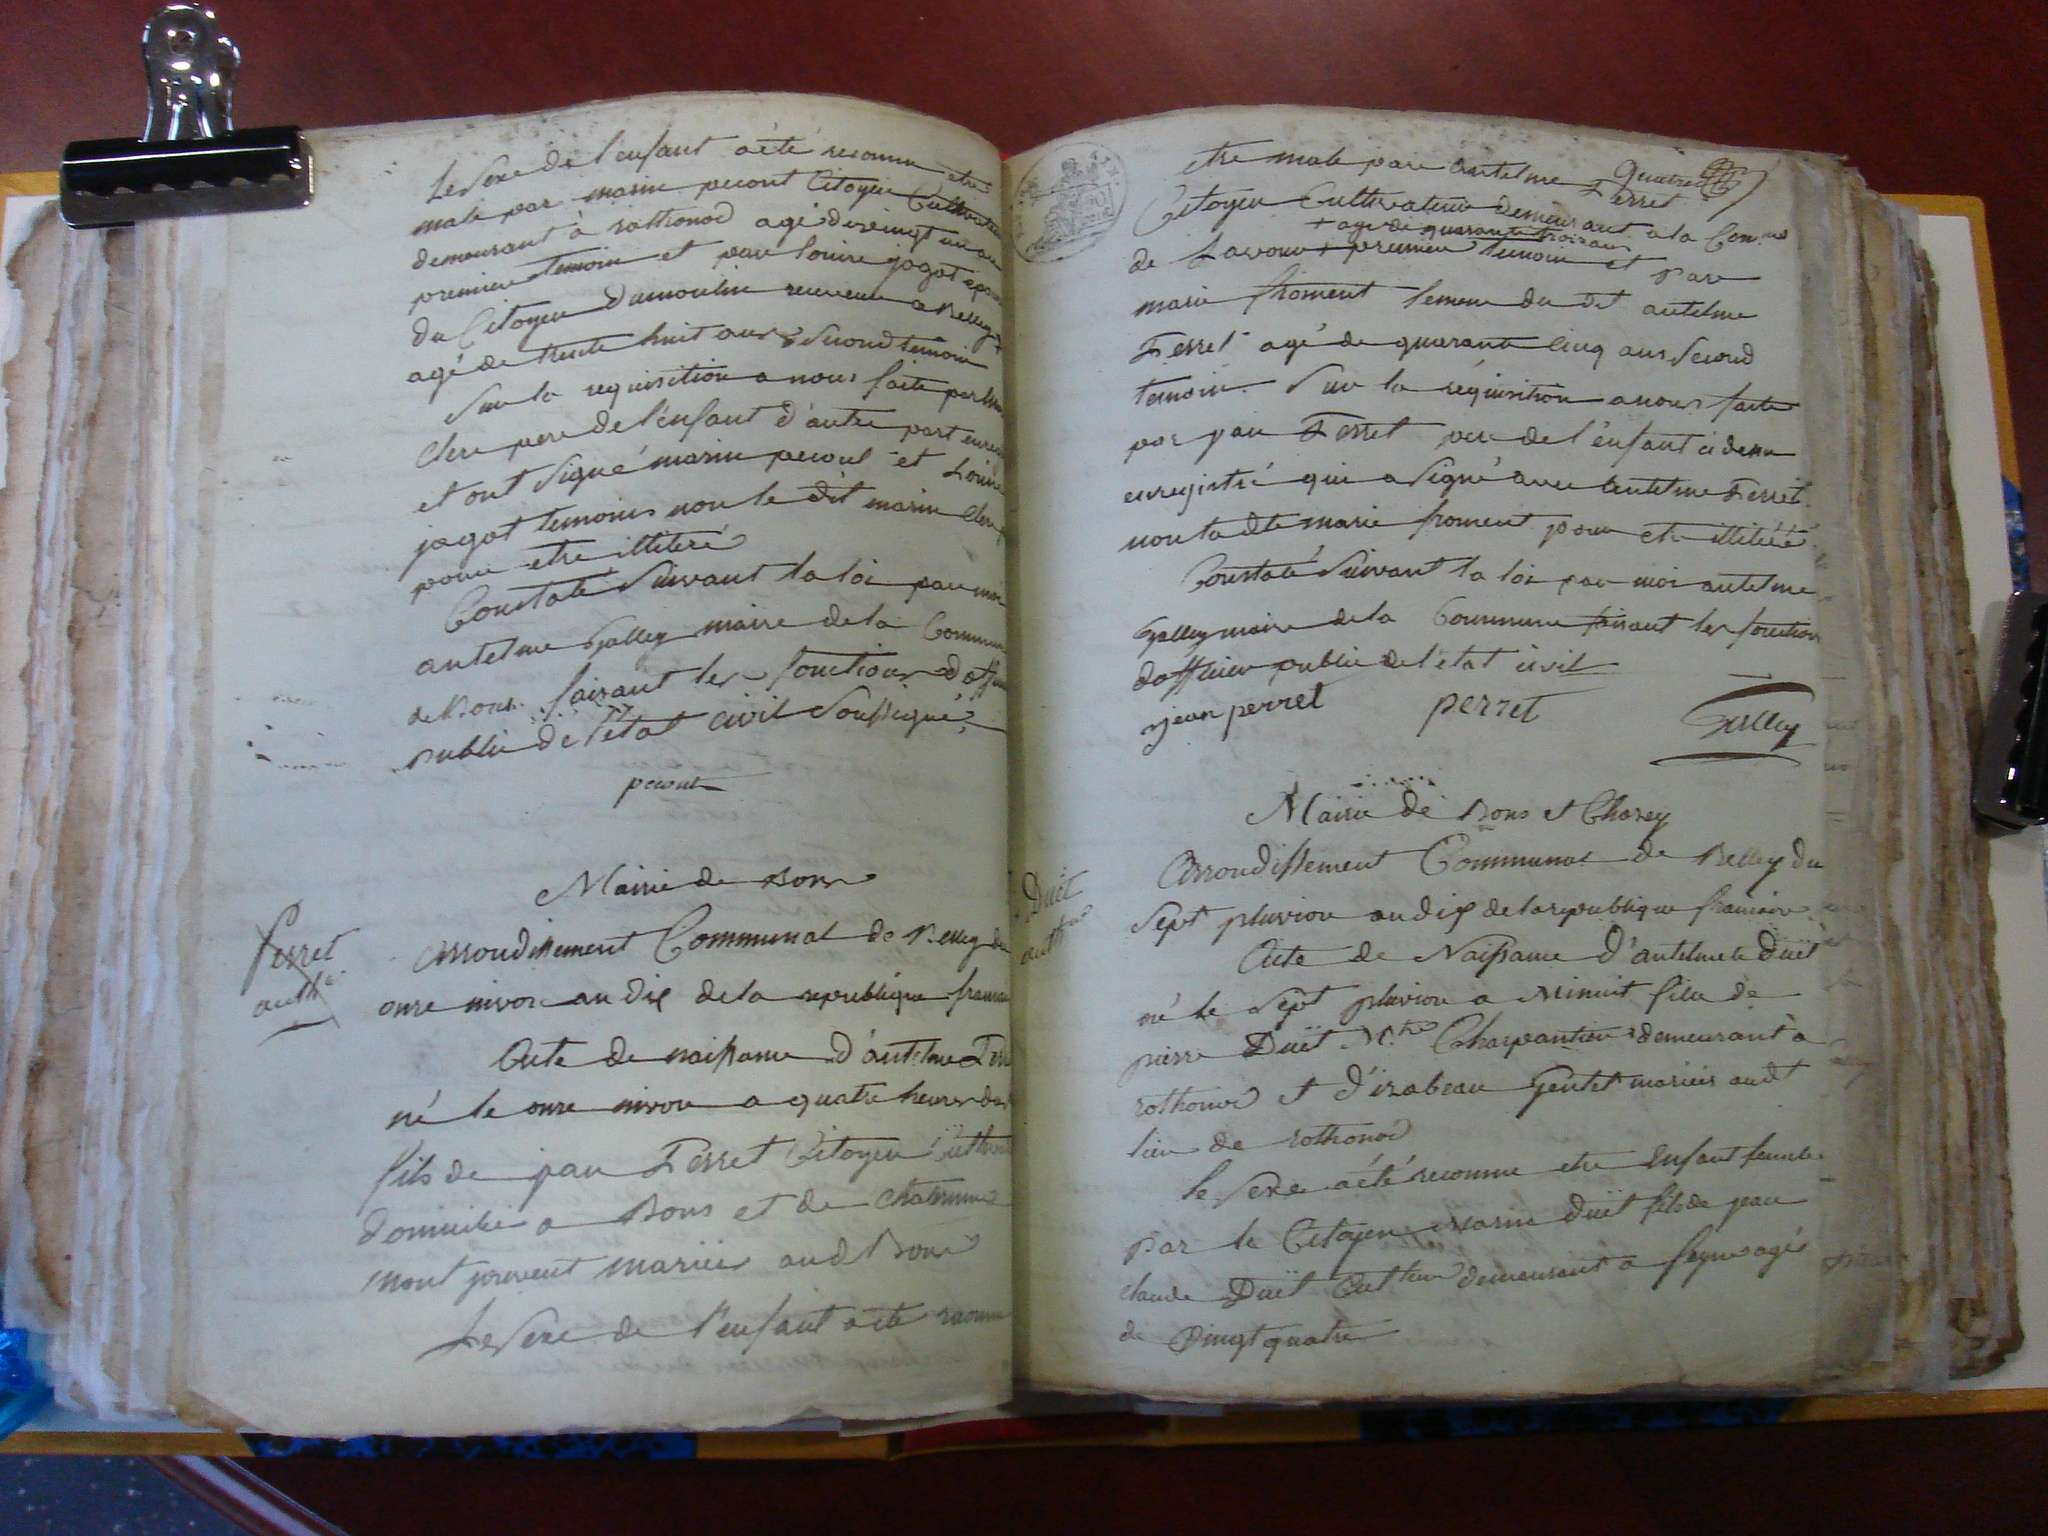 Le Sexe de l'enfant a été reconnu etre
male par marin pecout Citoyen Cultivateur
demeurant à rothonod agé de vingt un an
premier temoin et par louise jagot epouse
du Citoyen dumoulin receveur a Belley
agé de trente huit ans second temoin
Sur la requisition a nous faite par
Clerc pere de l'enfant d'autre part enre
et ont signé marin pecout et Louise
jagot temoins non le dit marin Clerc
pour etre illiteré
Constaté Suivant la loi par moi
antelme Galley maire de la Commune
de Bons faisant les fonctions d'officier
public de l'état civil Soussigné
pecout
Mairie de Bons
Perret
anth.e
Arrondissement Communal de Belley du
onze nivose an dix de la republique francai
Acte de naissance d'antelme Perr
né le onze nivose a quatre heures du
fils de jean Perret Citoyen Cultiva
domicilié a Bons et de
mont prevent mariés aud Bons
Le Sexe de l'enfant a été reconnu
quatre
etre male par antelme Perret
Citoyen Cultivateur demeurant a la Com.ne
+ agé de quarante trois ans
de Lavour + premier temoin et par
marie froment femme du dit antelme
Perret agé de quarante cinq ans second
temoin Sur la réquisition a nous faite
par jean Perret pere de l'enfant ci dessus
enregistré qui a signé avec antelme Perret
non ladte marie froment pour etre illiterée
Constaté Suivant la loi par moi antelme
Galley maire de la Commune faisant les fonctions
d'officier public de l'état civil
jean perret perret Galley
Mairie de Bons et Chazey
Duët
anth.e
Arrondissement Communal de Belley du
Sept pluviose an dix de la republique francaise
Acte de Naissance D'antelmete Duët
né le Sept pluviose a Minuit fille de
pierre Duët M.tre Charpantier demeurant à
rothonod et d'izabeau Gentet mariés audt
lieu de rothonod
le Sexe a été reconnu etre Enfant femelle
par le Citoyen marin Duët fils de jean
claude Duët Cult.teur demeurant a seyne agé
de Vingt quatre